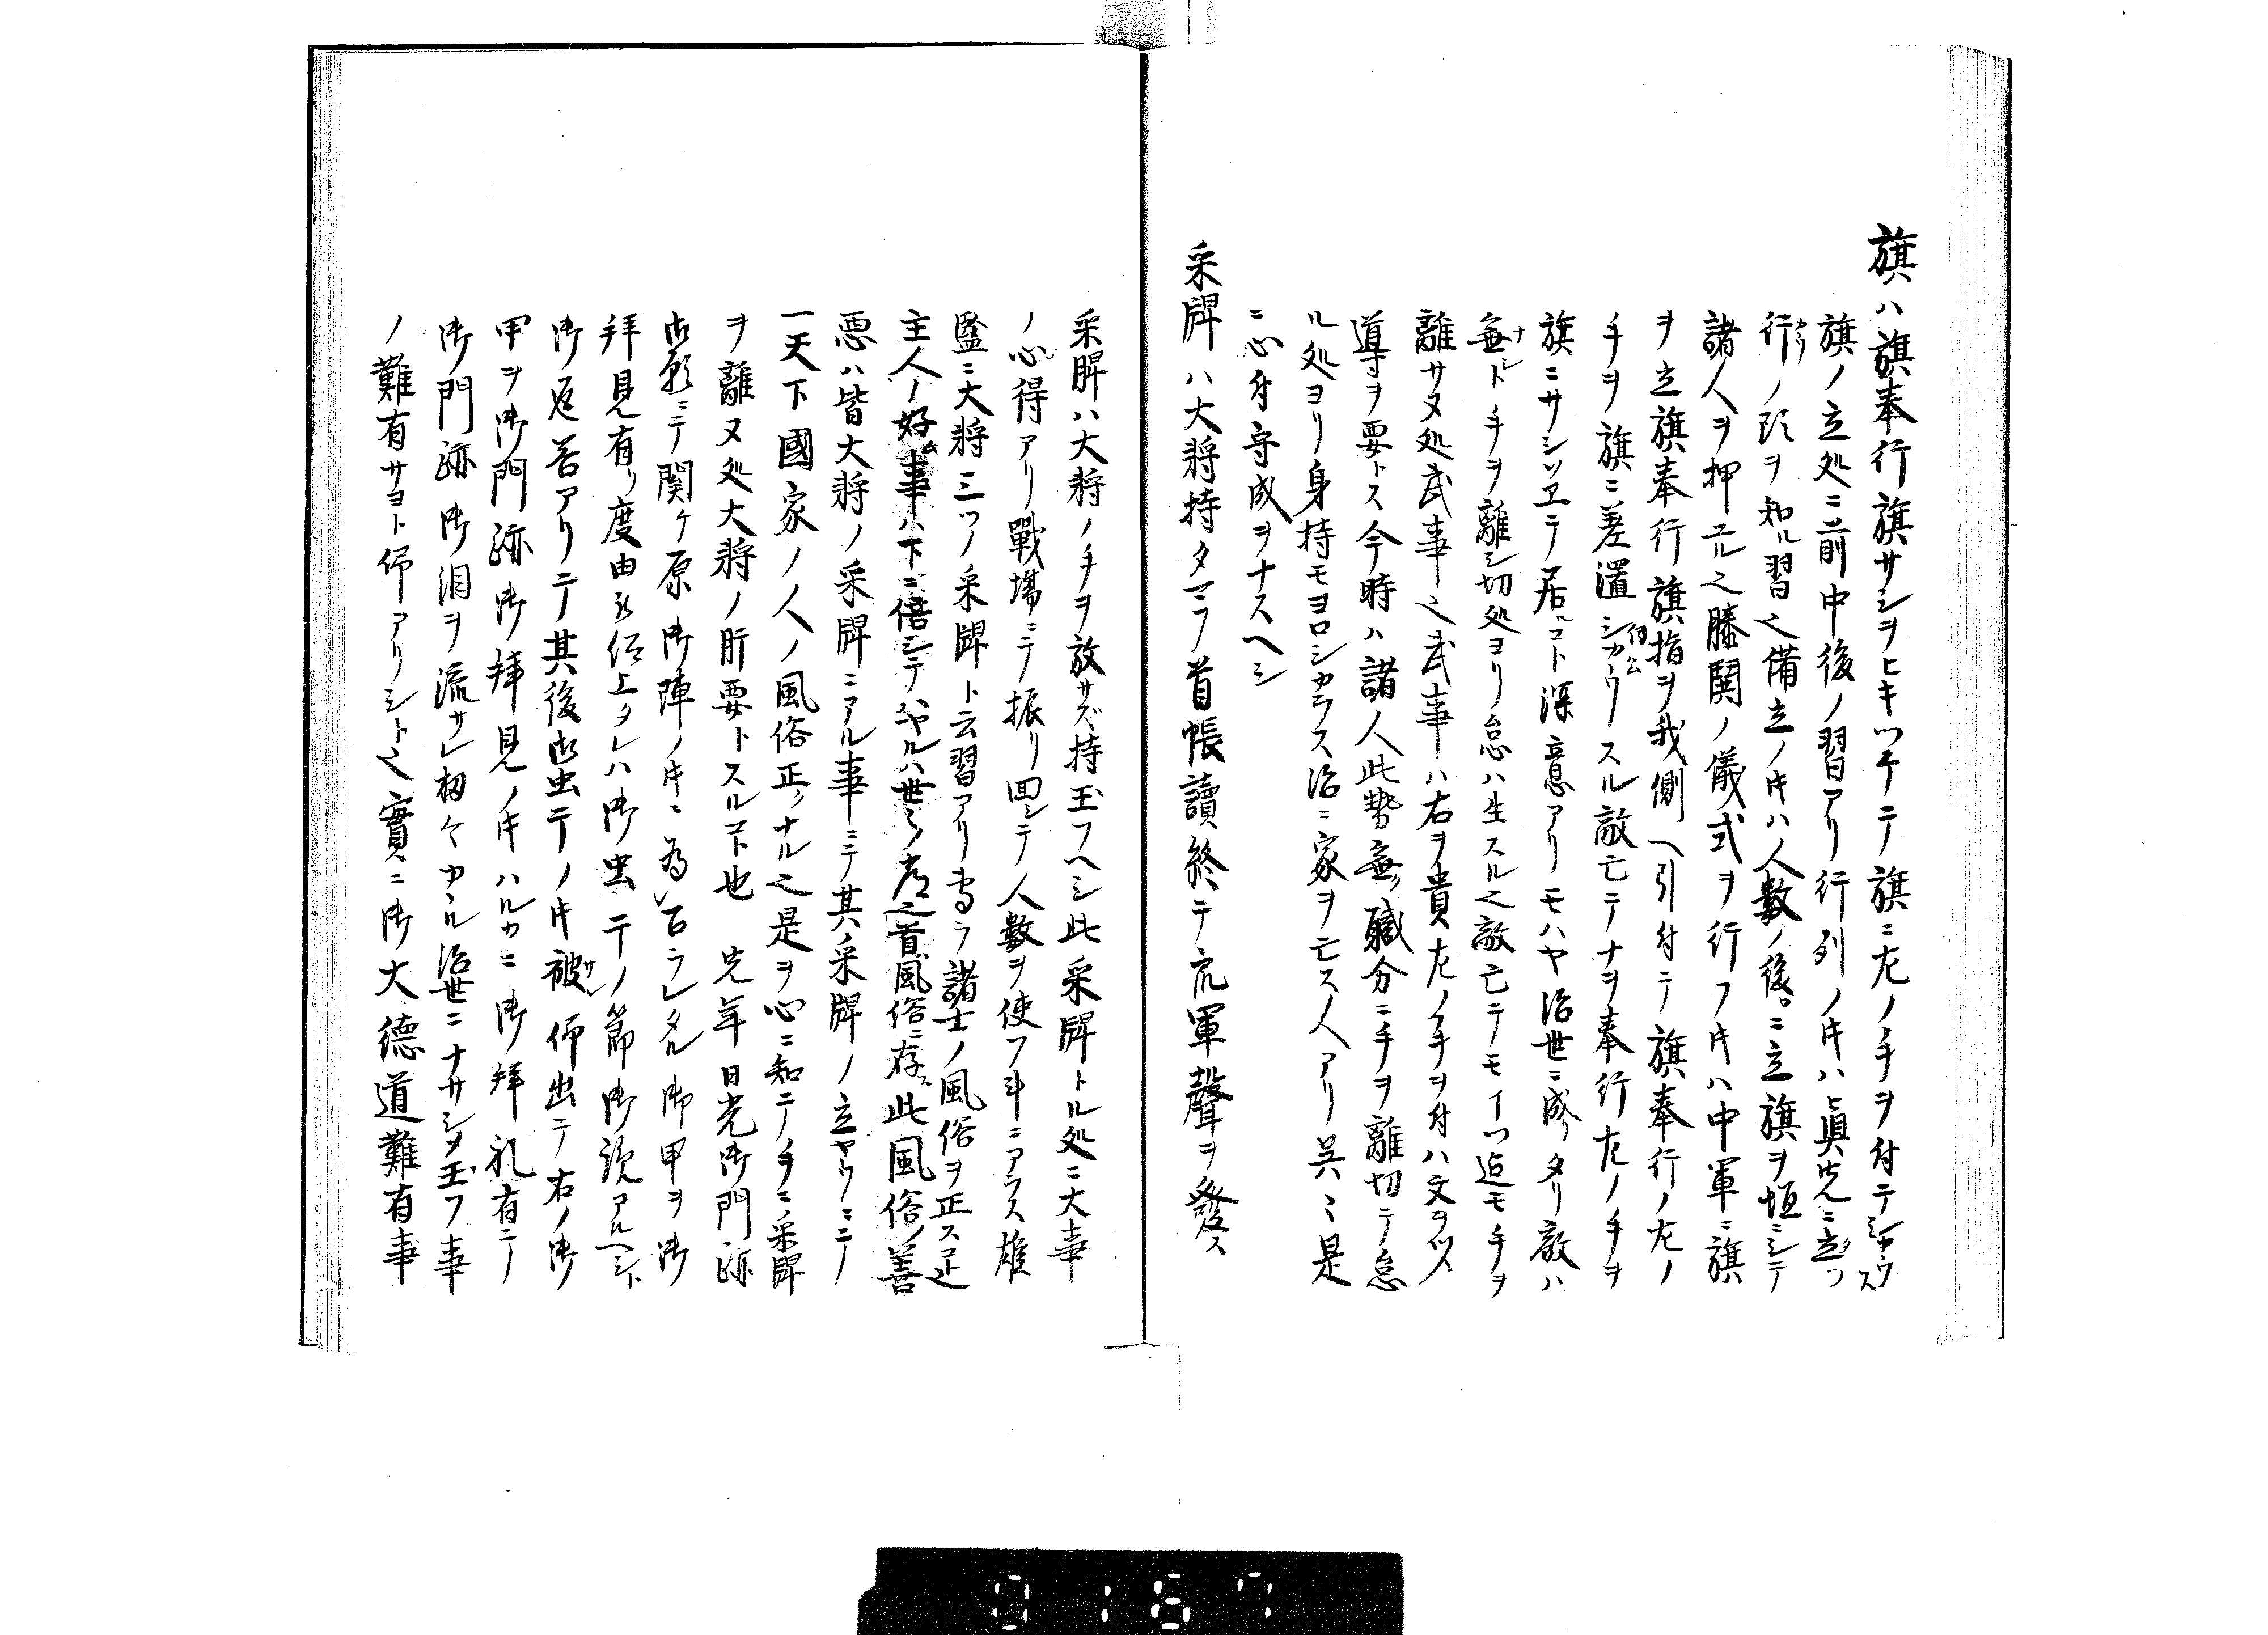 旗ハ旗奉行旗サシヲヒキツテテ旗ニ左ノ手ヲ付テシヤウス
旗ノ立処ニ前中後ノ習アリ行列ノ㐧ハ眞先ニ立ツ
行ノ跡ヲ知ル習也備立ノ㐧ハ人数ノ後ニ立旗ヲ垣ニシテ
諸人ヲ押ユル也勝鬨ノ儀式ヲ行フ㐧ハ中軍ニ旗
ヲ立旗奉行旗指ヲ我側ヘ引付テ旗奉行ノ左ノ
手ヲ旗ニ差置シカウスル敵亡テナヲ奉行左ノ手ヲ
旗ニサシソエテ居ルヿト深意アリモハヤ治世ニ成タリ敵ハ
無ト手ヲ離シ切処ヨリ怠ハ生スル也敵亡テモイツ迄モ手ヲ
離サヌ処武事也武事ハ右ヲ貴左ノ手ヲ付ハ文ヲ以
導ヲ要トス今時ハ諸人此勢無職分ニ手ヲ離切テ怠
ル処ヨリ身持モヨロシカラス治ニ家ヲ亡ス人アリ呉々是
ニ心付守成ヲナスヘシ
采牌ハ大将持タマフ首帳讀終テ充軍聲ヲ發ス
采牌ハ大将ノ手ヲ放サズ持玉フヘシ此采牌トル処ニ大事
ノ心得アリ戰場ニテ振リ回シテ人数ヲ使フ斗ニアラス雄
鑑ニ大将三ツノ采牌ト云習アリ専ラ諸士ノ風俗ヲ正スヿ也
主人ノ好ム事ハ下ニ倍シテハヤルハ世ノ常之首風俗ニ存ス此風俗ノ善
悪ハ皆大将ノ采牌ニアル事ニテ其ノ采牌ノ立ヤウニテ
一天下國家ノ人ノ風俗正シクナル也是ヲ心ニ知テノ手ニ采牌
ヲ離ヌ処大将ノ肝要トスルヿ也 先年日光御門跡
御願ニテ関ケ原御陣ノ㐧ニ為召ラレタル御甲ヲ御
拝見有リ度由被仰上タレハ御虫干ノ節御覧アルヘシト
御返答アリテ其後御虫干ノ㐧被仰出テ右ノ御
甲ヲ御門跡御拝見ノ㐧ハルカニ御拝礼有テ
御門跡御泪ヲ流サレ扨々カヽル治世ニナサシメ玉フ事
ノ難有サヨト仰アリシト也實ニ御大徳道難有事